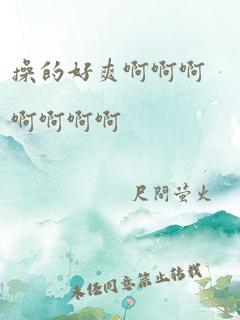 操的好爽啊啊啊
啊啊啊啊
尺間萤火
未经同意禁止转载